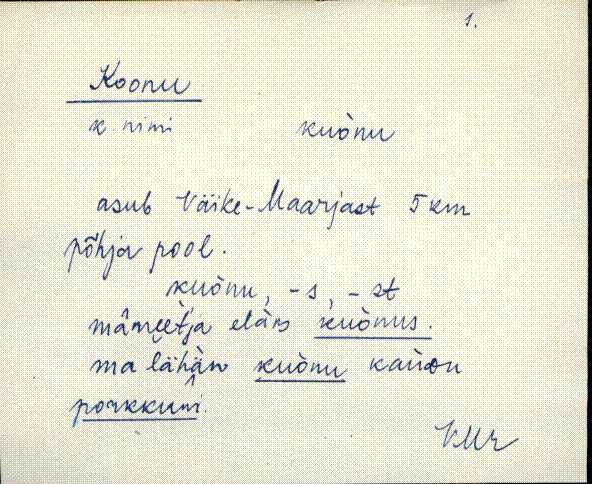 1.
Koonu
k. nimi kuònu
asub Väike-Maarjast 5 km
põhja pool.
kuònu, -s, -st
elàs kuònus.
ma lähän kuònu
porkkuni.
VMr